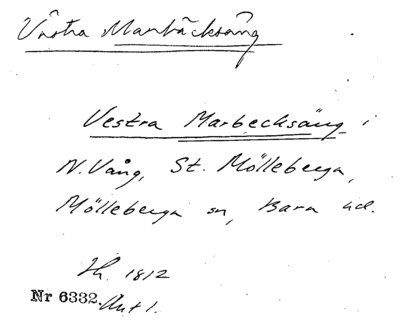 Västra Marbäcksäng
Vestra Marbecksäng i
N. Vång, St. Mölleberga,
Mölleberga sn, Bara hd.
1812
Nr 6332. Akt 1.